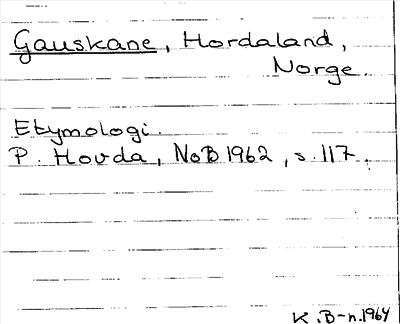 Gauskane, Hordaland,
Norge.
Etymologi.
P. Hovda, NoB 1962, s. 117.
K. B-n. 1964